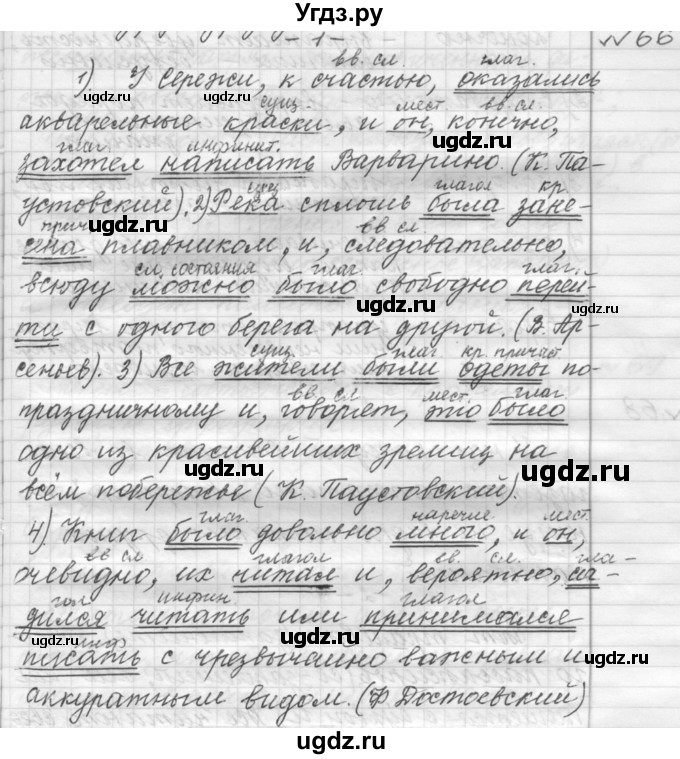 Угдз.ру
- 1 -
№66
вв. сл. глаг.
1) У Сережи, к счастью, оказались
сущ. мест. вв. сл.
акварельные краски, и он, конечно,
глаг. инфинит.
захотел написать Варварино. (К. Па-
сущ. глагол кр.
устовский). 2) Река сплошь была зане-
прич. вв сл.
сена плавником, и, следовательно,
сл. состояния глаг. глаг.
всюду можно было свободно перей-
ти с одного берега на другой. (В. Ар-
сущ. глаг кр. причаст.
сеньев). 3) Все жители были одеты по-
вв. сл мест. глаг.
праздничному и, говорят, это было
одно из красивейших зрелищ на
всём побережье (К. Паустовский).
глаг. наречие. мест.
4) Книг было довольно много, и он,
вв сл глагол вв. сл. гла-
очевидно, их читал и, вероятно, са-
гол инфин глагол
дился читать или принимался
инф
писать с чрезвычайно важным и
аккуратным видом. (Ф Достоевский)
ugdz.ru